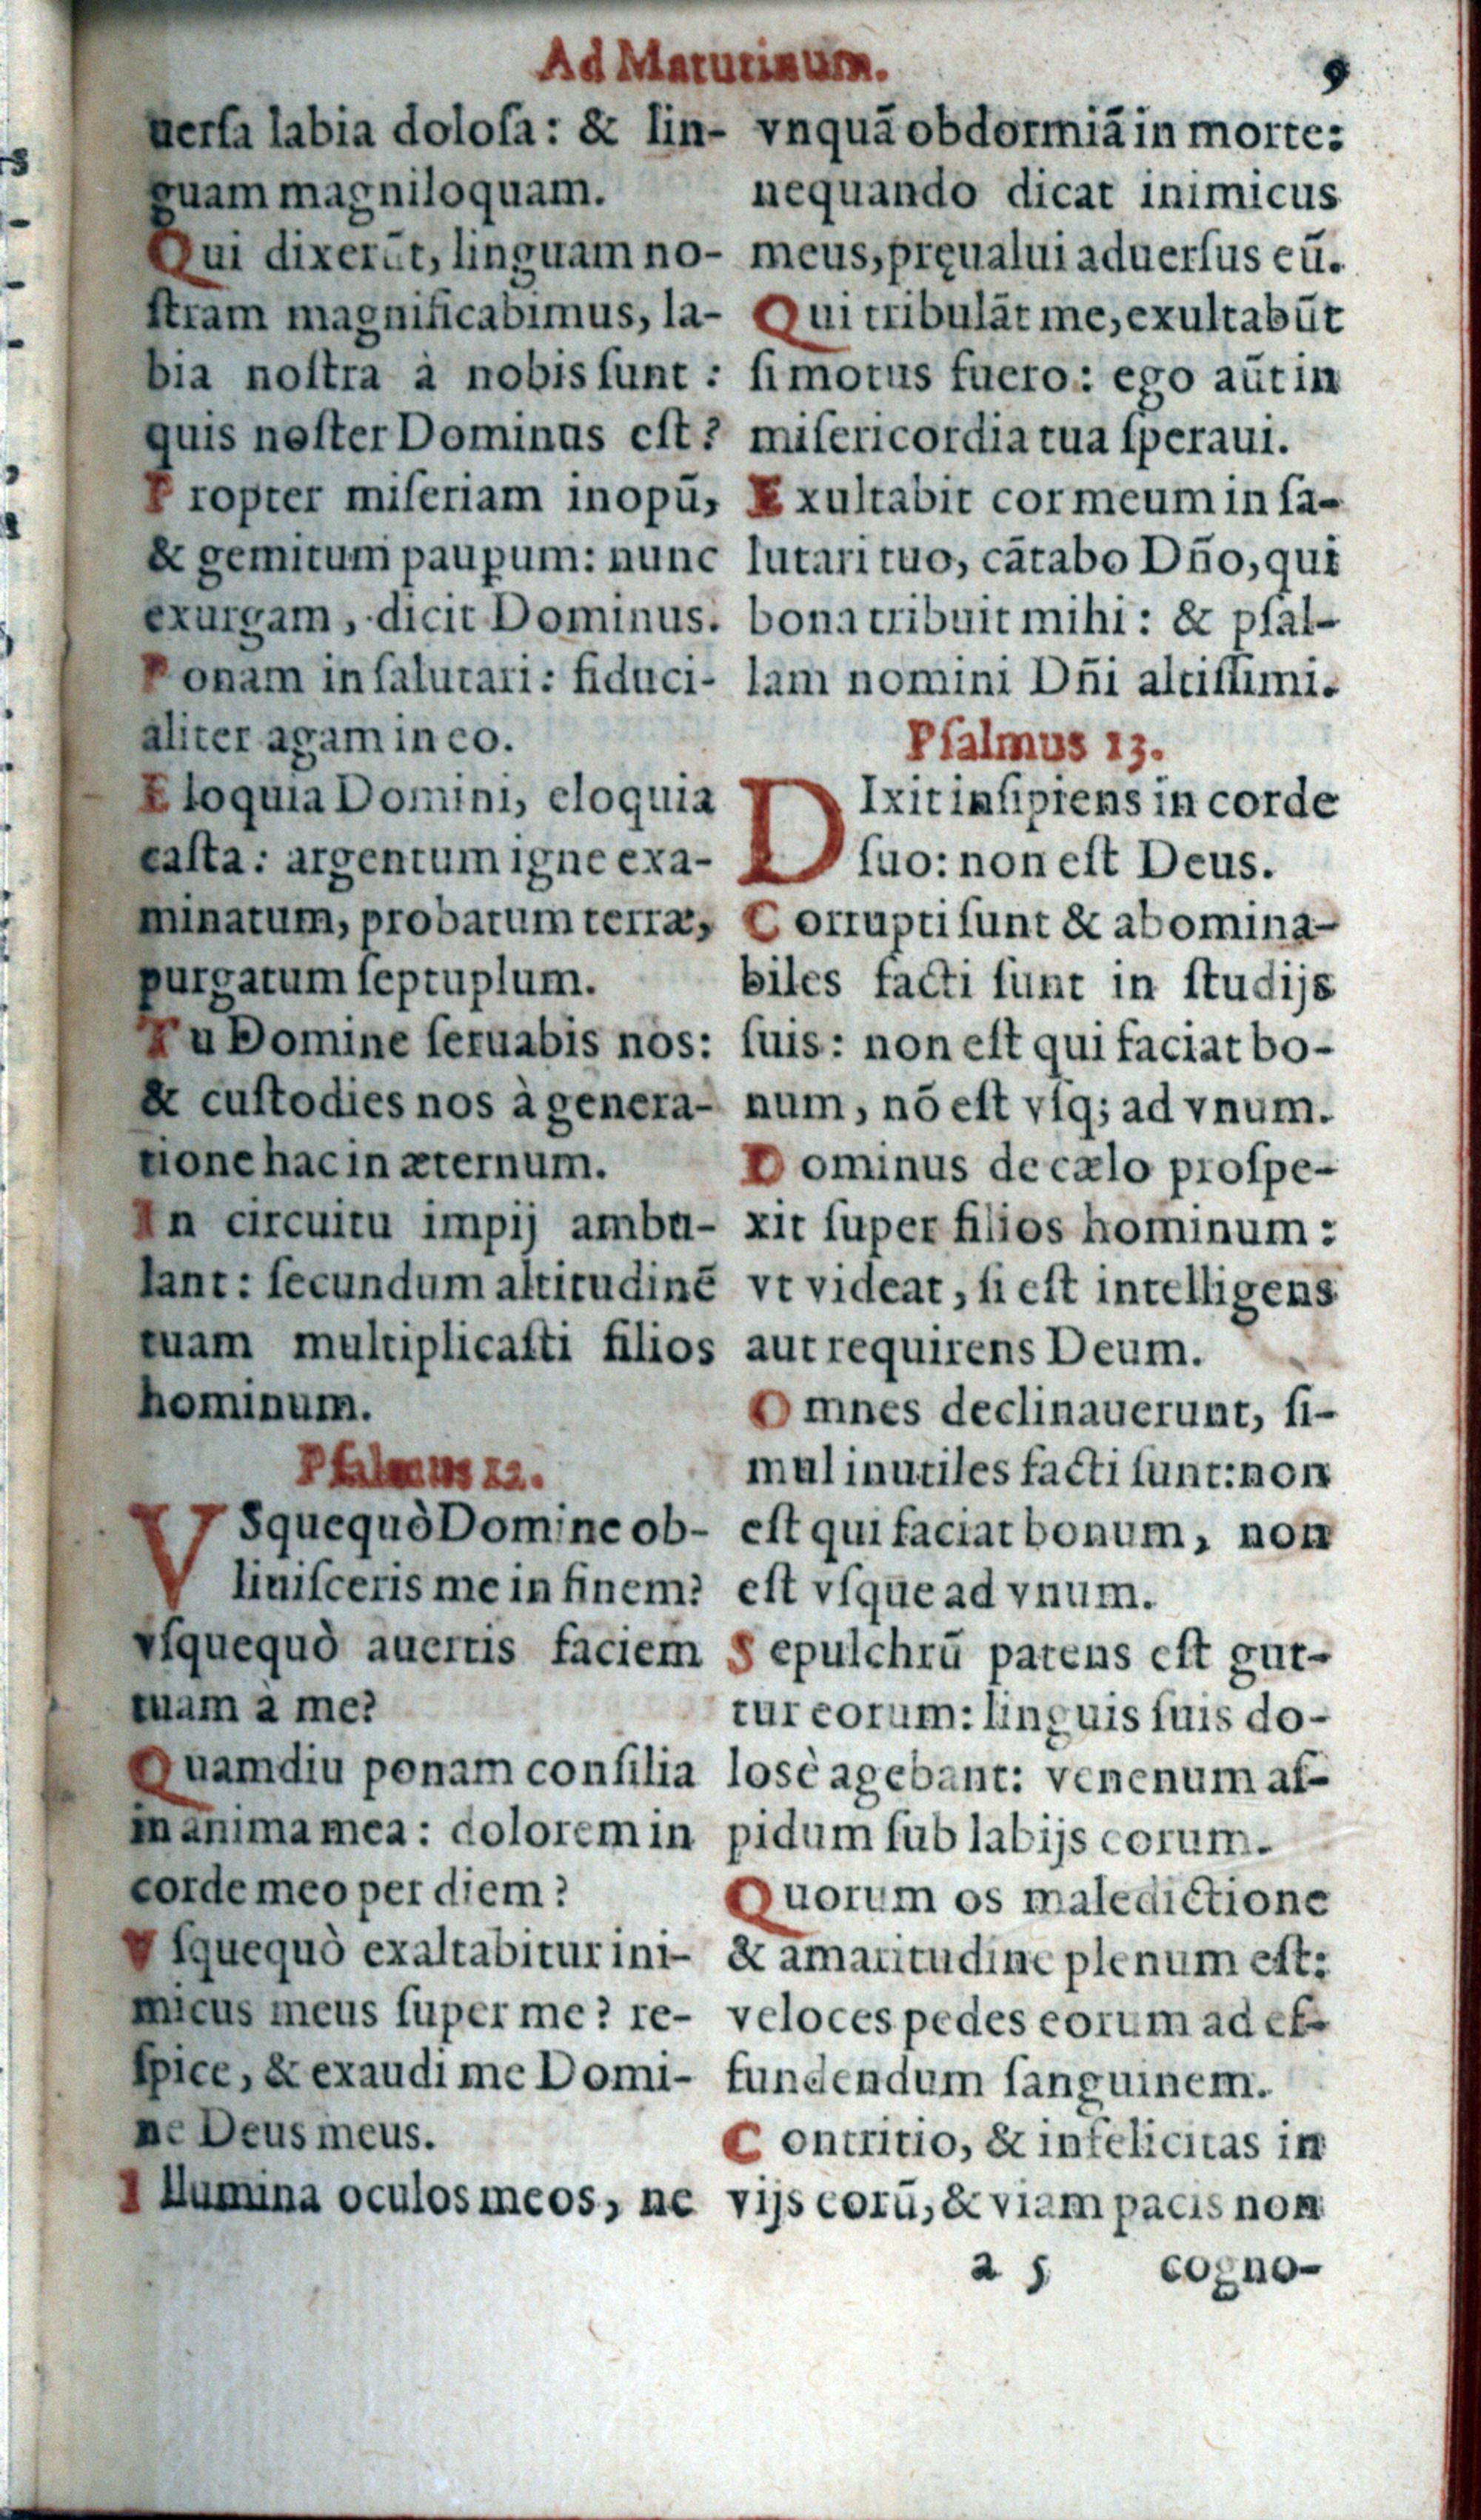 Ad Matutinum. 9
uerſa labia doloſa: & lin-
guam magniloquam.
Qui dixerūt, linguam no-
ſtram magnificabimus, la-
bia noſtra à nobis ſunt :
quis noſter Dominus eſt?
Propter miſeriam inopū,
& gemitum paup̱um: nunc
exurgam, dicit Dominus.
Ponam in ſalutari: fiduci-
aliter agam in eo.
Eloquia Domini, eloquia
caſta: argentum igne exa-
minatum, probatum terræ,
purgatum ſeptuplum.
Tu Domine ſeruabis nos:
& cuſtodies nos à genera-
tione hac in æternum.
In circuitu impij ambu-
lant: ſecundum altitudinē
tuam multiplicaſti filios
hominum.
Pſalmus 12.
VSquequò Domine ob-
liuiſceris me in finem?
vſquequò auertis faciem
tuam à me?
Quamdiu ponam conſilia
in anima mea: dolorem in
corde meo per diem?
Vſquequò exaltabitur ini-
micus meus ſuper me? re-
ſpice, & exaudi me Domi-
ne Deus meus.
Illumina oculos meos, ne
vnquā obdormiā in morte:
nequando dicat inimicus
meus, pręualui aduerſus eū.
Qui tribulāt me, exultabūt
ſi motus fuero: ego aūt in
miſericordia tua ſperaui.
Exultabit cor meum in ſa-
lutari tuo, cātabo Dño, qui
bona tribuit mihi: & pſal-
lam nomini Dñi altiſſimi.
Pſalmus 13.
DIxit inſipiens in corde
ſuo: non eſt Deus.
Corrupti ſunt & abomina-
biles facti ſunt in ſtudijs
ſuis: non eſt qui faciat bo-
num, nō eſt vſq; ad vnum.
Dominus de cælo proſpe-
xit ſuper filios hominum:
vt videat, ſi eſt intelligens
aut requirens Deum.
Omnes declinauerunt, ſi-
mul inutiles facti ſunt: non
eſt qui faciat bonum, non
eſt vſque ad vnum.
Sepulchrū patens eſt gut-
tur eorum: linguis ſuis do-
losè agebant: venenum aſ-
pidum ſub labijs eorum.
Quorum os maledictione
& amaritudine plenum eſt:
veloces pedes eorum ad ef-
fundendum ſanguinem.
Contritio, & infelicitas in
vijs eorū, & viam pacis non
a 5 cogno-